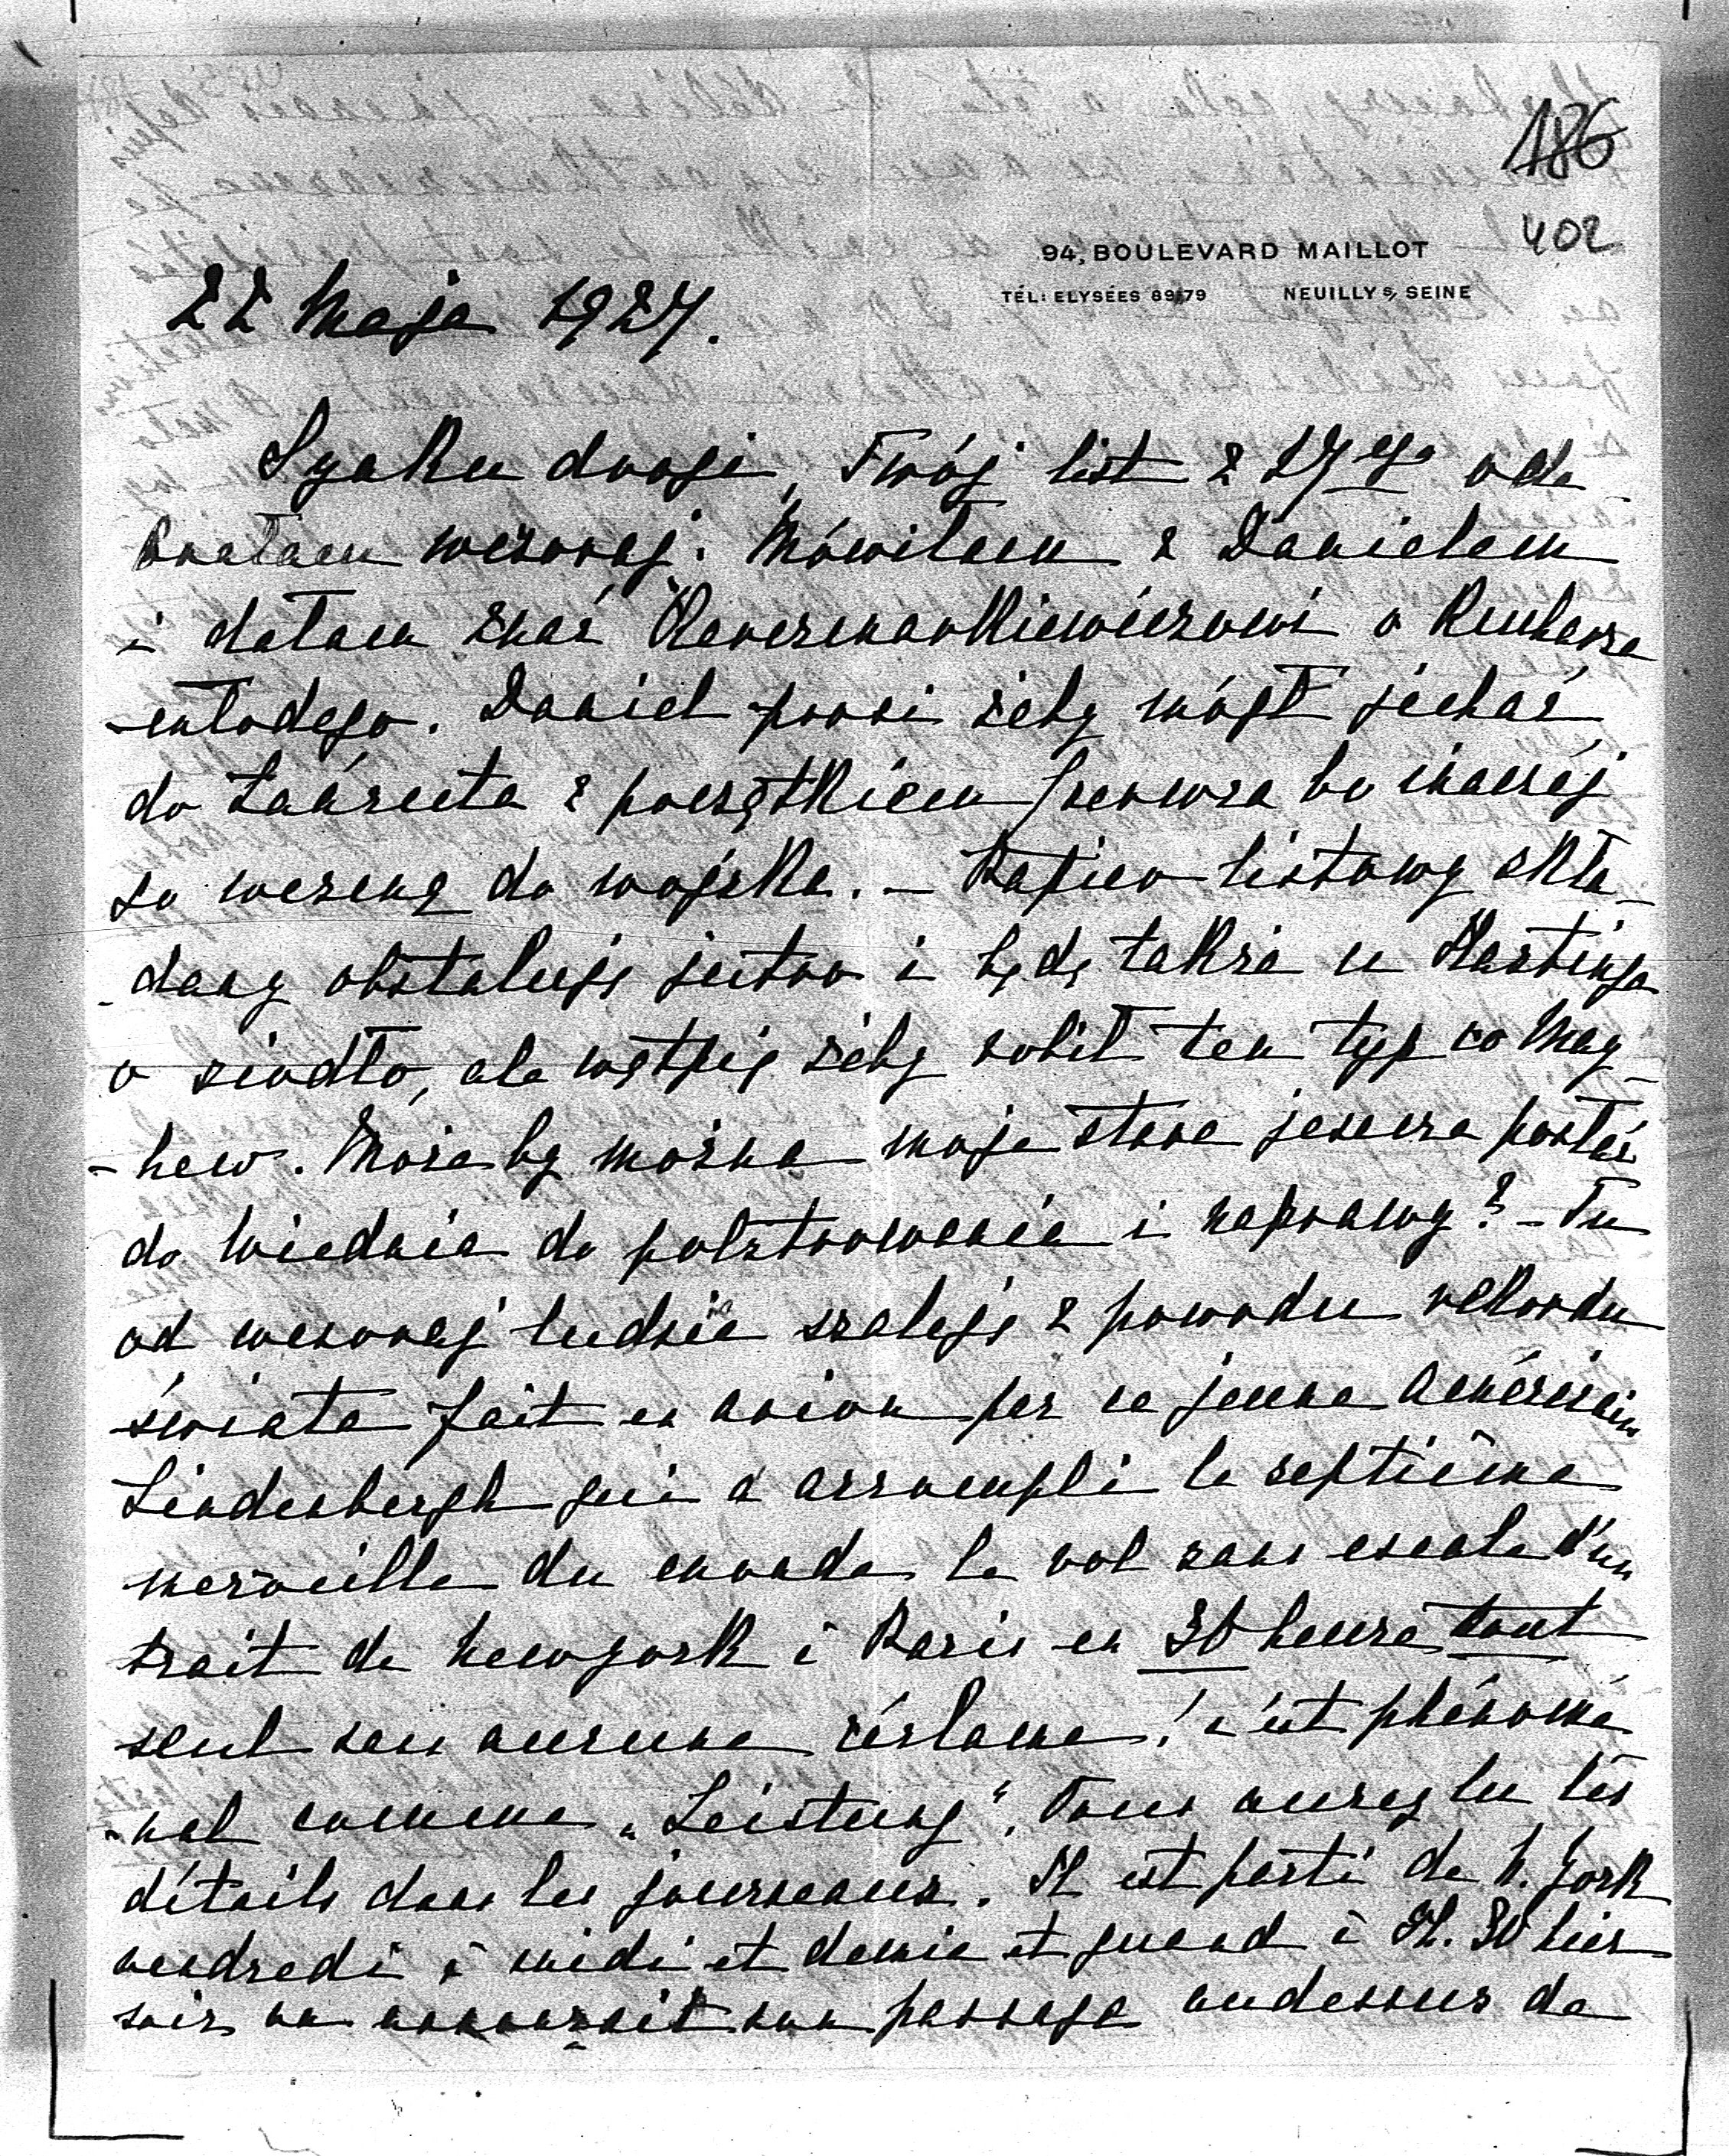 186
402
94, BOULEVARD MAILLOT
TÉL: ELYSÉES 89/79 NEUILLY S/ SEINE
22 Maja 1927.
Synku drogi, Twój list z 17go ode
brałam wczoraj. Mówiłam z Danielem
i dałam znać o Kucharza
-młodego. Daniel prosi żeby mógł jechać
do Łańcuta z początkiem czerwca bo inaczéj
go wezmą do wojska. – Papier listowy skła
-dany obstaluję jutro i będę także u Hastinga
o siodło, ale wątpię żeby robił ten typ co May
-hew. Może by można moje stare jeszcze posłać
do Wiednia do polstrowania i naprawy? – Tu
od wczoraj ludzie szaleją z powodu rekordu
świata fait en avion par ce jeune Américain
Lindenbergh qui a accompli la septième
merveille du monde le vol sans escale d'un
trait de Newyork à Paris en 30 heures tout
seul sans aucune réclame! c'est phénomé
-nal comme „Leistung". Vous aurez lu les
détails dans les journeaux. Il est parti de N. York
vendredi à midi et demie et quand à 8h. 30 hier
soir on annonçait son passage audessus de